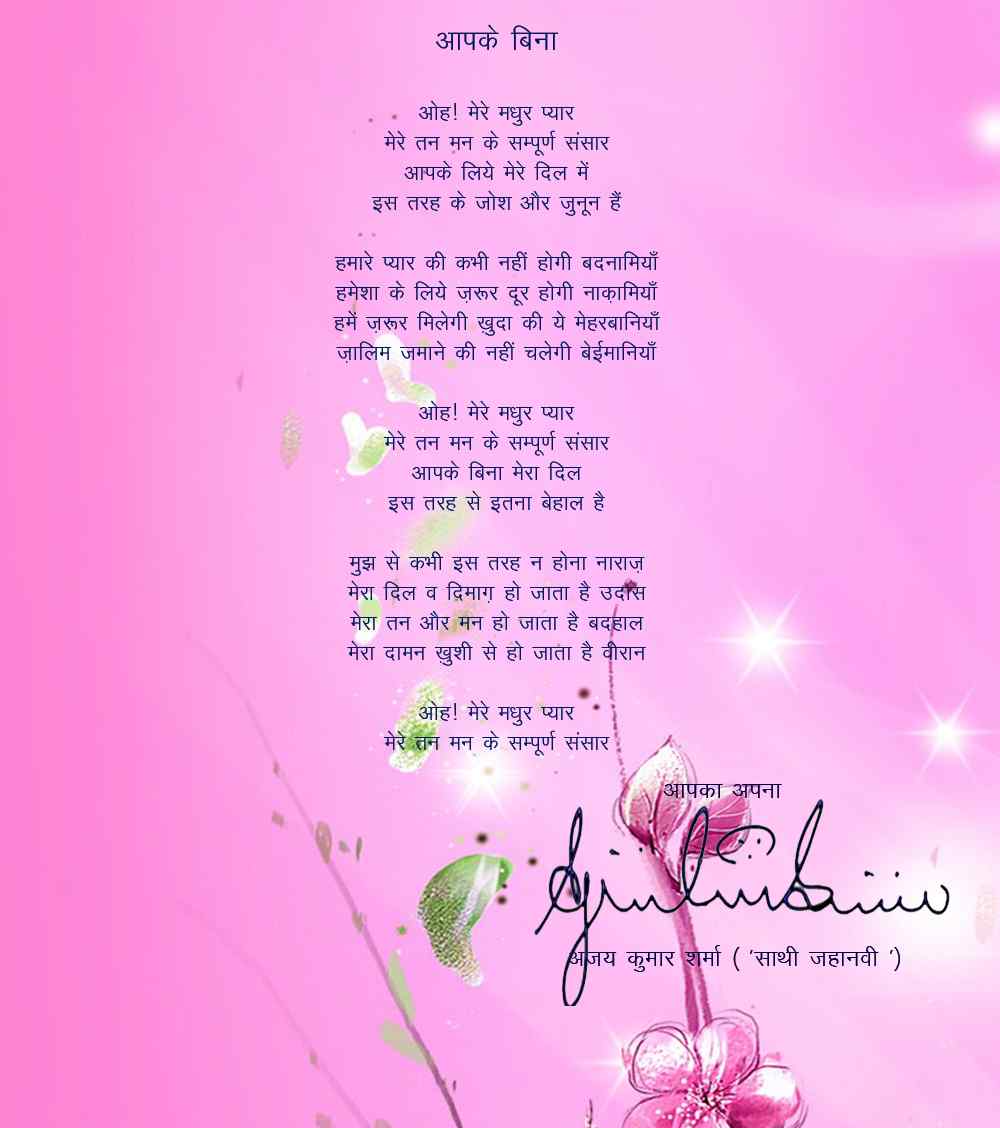 आपके बिना
ओह! मेरे मधुर प्यार
मेरे तन मन के सम्पूर्ण संसार
आपके लिये मेरे दिल में
इस तरह के जोश और जुनून हैं
हमारे प्यार की कभी नहीं होगी बदनामियाँ
हमेशा के लिये ज़रूर दूर होगी नाक़ामियाँ
हमें ज़रूर मिलेगी ख़ुदा की ये मेहरबानियाँ
ज़ालिम जमाने की नहीं चलेगी बेईमानियाँ
ओह! मेरे मधुर प्यार
मेरे तन मन के सम्पूर्ण संसार
आपके बिना मेरा दिल
इस तरह से इतना बेहाल है
मुझ से कभी इस तरह न होना नाराज़
मेरा दिल व दिमाग़ हो जाता है उदास
मेरा तन और मन हो जाता है बदहाल
मेरा दामन ख़ुशी से हो जाता है वीरान
ओह! मेरे मधुर प्यार
मेरे तन मन के सम्पूर्ण संसार
आपका अपना
अजय कुमार शर्मा ( 'साथी जहानवी ')